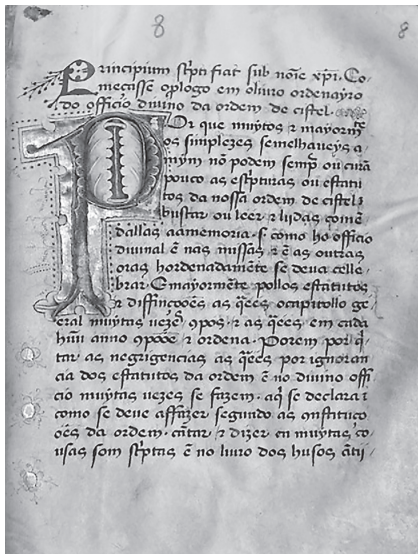 8 8
Principium scpti fiat sub noie xpi. Co
messasse o plogo em o liuro ordenayro
do officio diuino da ordem de cistel.
Por que muytos z mayormete
os simplezes semelhaueys a
mym nõ podem sempre ou cura
pouco as escpturas ou estatu
tos da nossa ordem de cistel
buscar ou leer z lidas come
dallas aa memoria. s. como ho officio
diuinal e nas missas. z e as outras
oras hordenadamẽte se deua celle
brar. E mayormẽte pollos estatutos
z diffinçoões as q̃ees o capitollo ge
eral muytas vezes 9pos. z as q̃ees em cada
huũ anno 9poõe z ordena. Porem por q̃
tar as negrigencias as q̃ees por ignoran
cia dos estatutos da ordem e no diuino offi
cio muytas vezes se fazem. aq̃ se declara
como se deue affazer segundo as instituço
oẽs da ordem. cãtar z dizer em muytas co
usas som scptas e no liuro dos husos ãti